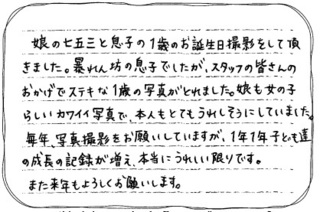 娘の七五三と息子の1歳のお誕生日撮影をして頂
きました。暴れん坊の息子でしたが、スタッフの皆さんの
おかげでステキな1歳の写真がとれました。娘も女の子
らしいカワイイ写真で、本人もとてもうれしそうにしていました。
毎年、写真撮影をお願いしていますが、1年1年子ども達
の成長の記録が増え、本当にうれしい限りです。
また来年もよろしくお願いします。